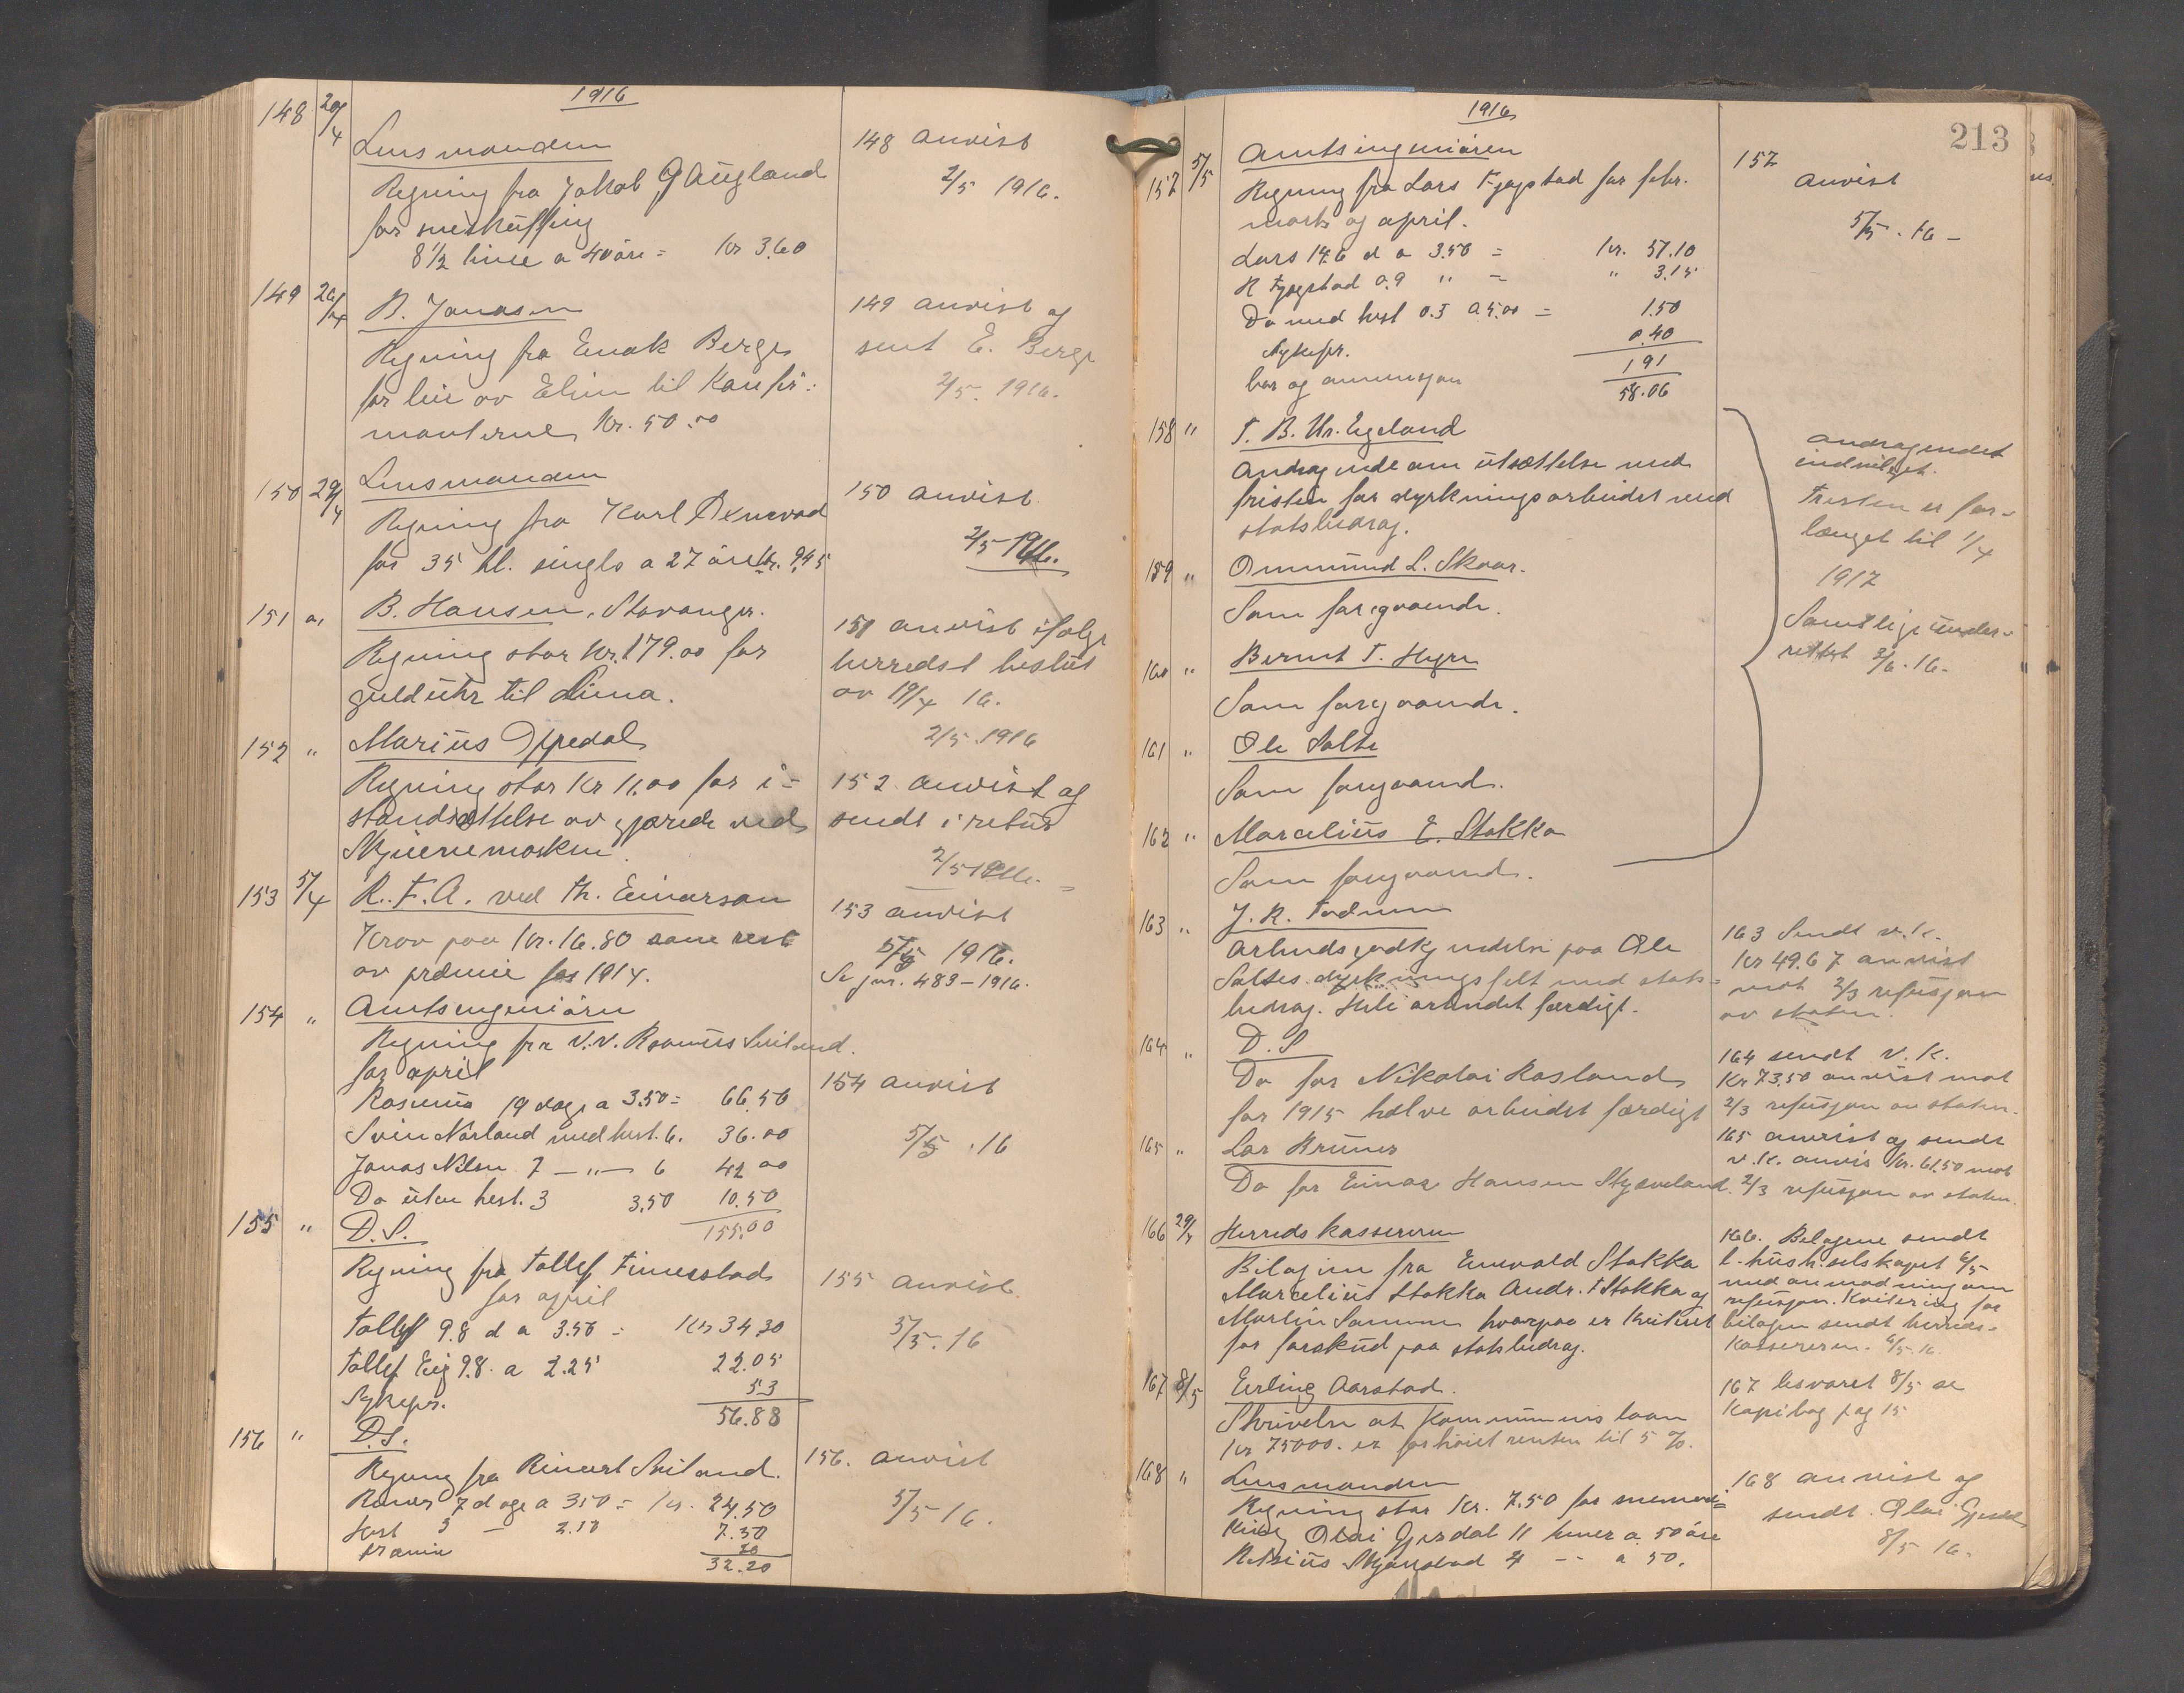 1916
148 29/4
Lensmanden
Regning fra Jakob Gaugland
for sneskuffing
8 1/2 time a 40 øre = Kr 3.60
148 anvist
2/5 1916.
149 26/4
B. Jonasen
Regning fra Enok Berge
for leie av Elim til Konfir-
manterne Kr. 50.00
149 anvist og
sent E. Berge
2/5. 1916.
150 29/4
Lensmanden
Regning fra Karl
for 35 hl. singls a 27 øre Kr. 9.45
150 anvist
2/5 1916.
151 "
B. Hansen, Stavanger.
Regning stor Kr. 179.00 for
gulduhr til Lima.
151 anvist ifølge
herredst beslut
av 19/4 16.
2/5 1916
152 "
Marius Oppedal
Regning stor Kr 11.00 for i-
standsættelse av gjærede ved
152 anvist og
sendt i retur
2/5 1916.
153 5/4
R.F.A. ved Th. Einarson
Krav paa Kr. 16.80 som rest
av præmie for 1914.
153 anvist
5/5 1916.
Se jur. 489-1916.
154 "
Amtsingeniøren
Regning fra V.V. Rasmus Sviland.
for april
Rasmus 19 dage a 3.50 = 66.50
Svein Norland med hest. 6. 36.00
Jonas Nilsen 7 - " - 6 42 00
Do uten hest. 3 3.50 10.50
155.00
154 anvist
5/5 .16
155 "
D.S.
Regning fra Tollef Finnestad
for april
Tollef 9.8 d a 3.50 = Kr 34.30
Tollef Eig 9.8. a 2.25 22.05
Sykepr. 53
56.88
155 anvist.
5/5.16
156 "
D.S.
Regning fra Reinert Sviland.
7 dage a 3.50 = Kr. 24.50
Hest 3 - 2.50 7.50
præmie 20
32.20
156. anvist
5/5 16.
1916
213
157 5/5
Amtsingeniøren
Regning fra Lars Fjogstad for febr.
marts og april.
Lars 14.6 d a 3.50 = Kr. 51.10
R Fjogstad 0.9 " = " 3.15
Do med hest 0.3 a 5.00 = 1.50
Sykepr. 0.40
bor og amunisjon 191
58.06
157
anvist
5/5. 16 -
158 "
T. B. Ur. Egeland
Andragende om utsættelse med
fristen for dyrkningsarbeidet med
statsbidrag.
159 "
Ommund L. Skaar.
Som foregaaende.
160 "
Bernt T. Hegre
Som foregaaende.
161 "
Ole Salte
Som foregaaende.
162 "
Marcelius E. Stokka
Som foregaaende.
andragendet
indvilget.
Fristen er for-
længet til 1/4
1917
Samtlige under-
rettet 3/6. 16.
163 "
J. R. Todnem
Arbeidsgodkjendelse paa Ole
Saltes dyrkningsfelt med stats-
bidrag. Hele arbeidet færdigt.
163 Sendt v.k.
Kr 49.67 anvist
mot 2/3 refusjon
av staten.
164 "
D. S
Do for Nikolai Rosland
for 1915 halve arbeidet færdigt
164 sendt v. k.
Kr 73.50 anvist mot
2/3 refusjon av staten.
165 "
Lar Bruner
Do for Einar Hansen Skjæveland.
165 anvist og sendt
v.k. anvis Kr. 61.50 mot
2/3 refusjon av staten.
166 29/4
Herredskassereren
Bilagene fra Enevald Stokka
Marcelius Stokka Andr. T Stokka og
Martin Sømme hvorpaa er kvitert
for forskud paa statsbidrag.
166. Bilagene sendt
l. hush. selskapet 6/5
med anmodning om
refusjon. Kvitering for
bilagen sendt herreds-
kassereren. 6/5-16.
167 8/5
Erling Aarstad.
Skrivelse at Kommunens laan
Kr 75000. er forhøiet renten til 5 %.
167 besvaret 8/5 se
Kopibog pag 15
168 "
Lensmanden
Regning stor Kr. 7.50 for snemaa-
king Olai Gjesdal 11 timer a 50 øre
Skjørestad 4 - - a 50.
168 anvist og
sendt. Olai Gjesdal
8/5 16.